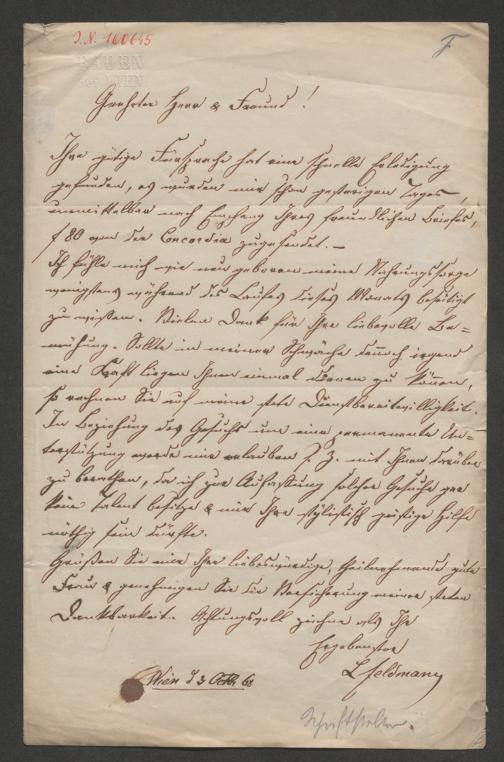 J.N. 160645
F
Geehrter Herr & Freund!
Ihre gütige Fürsprache hat eine schnelle Erledigung
gefunden, es wurden mir schon gestrigen Tages,
unmittelbar nach Empfang Ihres freundlichen Briefes,
f 80 von der Concordia zugesendet. –
Ich fühle mich wie neu geboren meine Nahrungssorge
wenigstens während des Laufes dieses Monats beseitigt
zu wissen. Vielen Dank für Ihre liebevolle Be=
mühung. Sollte in meiner Schwäche dennoch irgend
eine Kraft liegen Ihnen einmal dienen zu können,
so rechnen Sie auf meine stete Dienstbereitwilligkeit.
In Beziehung des Gesuchs um eine permanente Un=
terstützung werde mir erlauben z. Z. mit Ihnen darüber
zu berathen, da ich zur Auffassung solcher Gesuche gar
kein Talent besitze & mir Ihre stylistisch geistige Hilfe
nöthig sein dürfte.
Grüßen Sie mir Ihre liebenswürdige, theilnehmende gute
Frau & genehmigen Sie die Versicherung meiner steten
Dankbarkeit. Achtungsvoll zeichne als Ihr
Ergebenster
L Feldmann
Wien d 3
Schriftsteller.